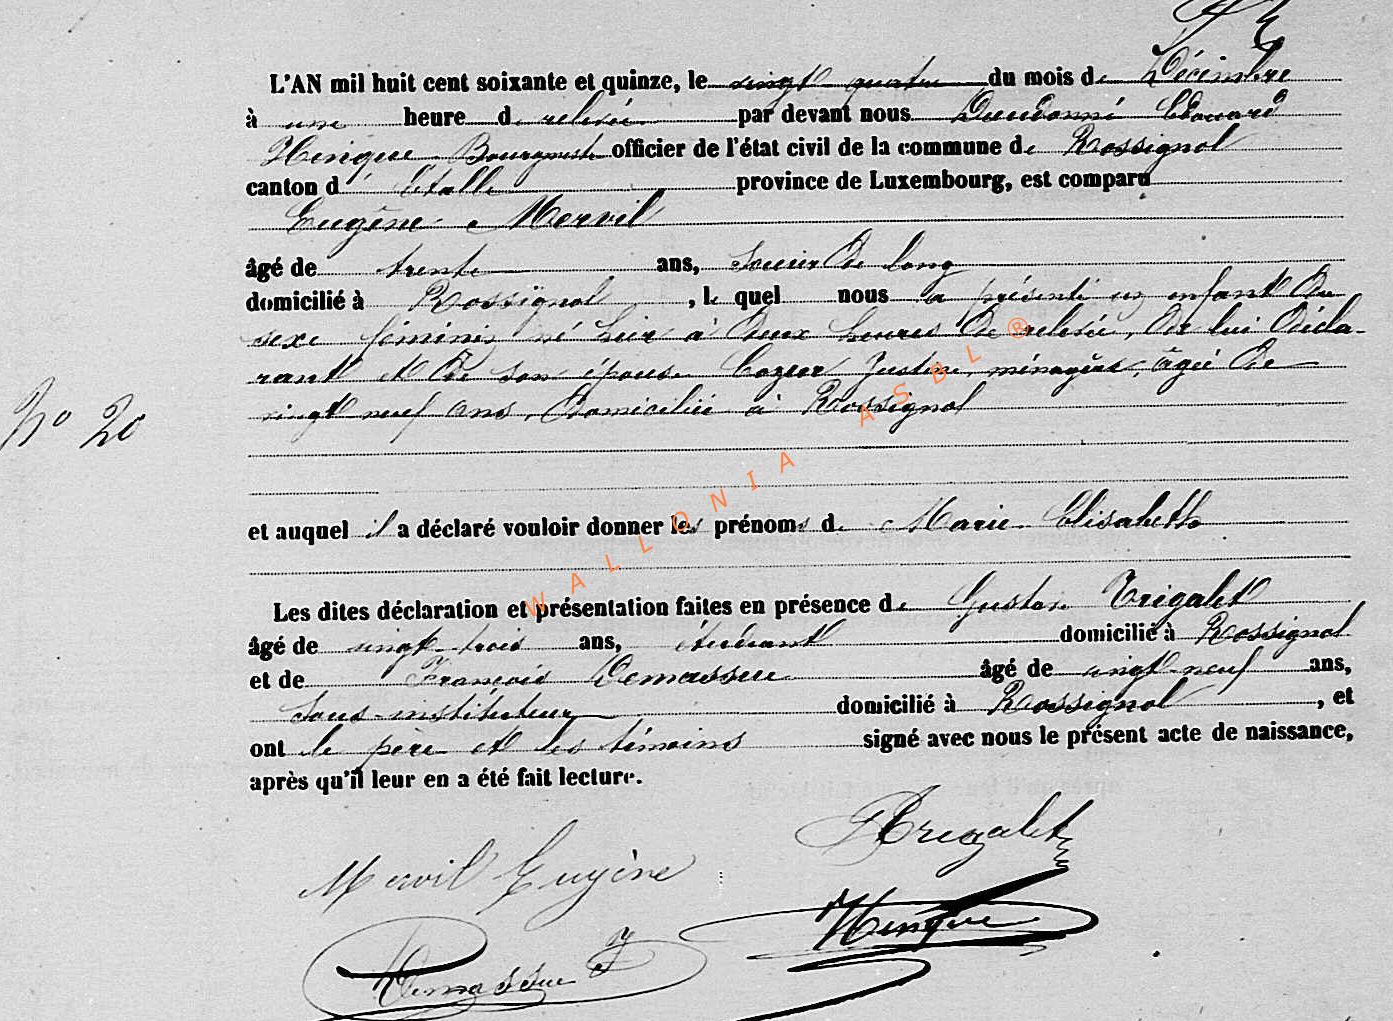 L'AN mil huit cent soixante et quinze, le vingt quatre du mois de Décembre
à une heure de relevée par devant nous Dieudonné Edouard
Hinque Bourgmestre officier de l'état civil de la commune de Rossignol
canton d'Etalle province de Luxembourg, est comparu
Eugène Mervil
âgé de trente ans, scieur de long
domicilié à Rossignol, lequel nous a présenté un enfant du
sexe féminin né hier à deux heures de relevée, de lui décla-
rant et de son épouse Justine, ménagère, âgée de
vingt neuf ans, domiciliée à Rossignol
N° 20
et auquel il a déclaré vouloir donner les prénoms de Marie Elisabeth
Les dites déclaration et présentation faites en présence de Gustave Trigalet
âgé de vingt-trois ans, étudiant domicilié à Rossignol
et de François Demassue âgé de vingt-neuf ans,
sous-instituteur domicilié à Rossignol, et
ont le père et les témoins signé avec nous le présent acte de naissance,
après qu'il leur en a été fait lecture.
GTrigalet
Mervil Eugène
Hinque
Demassue F
WALLONIA ASBL®